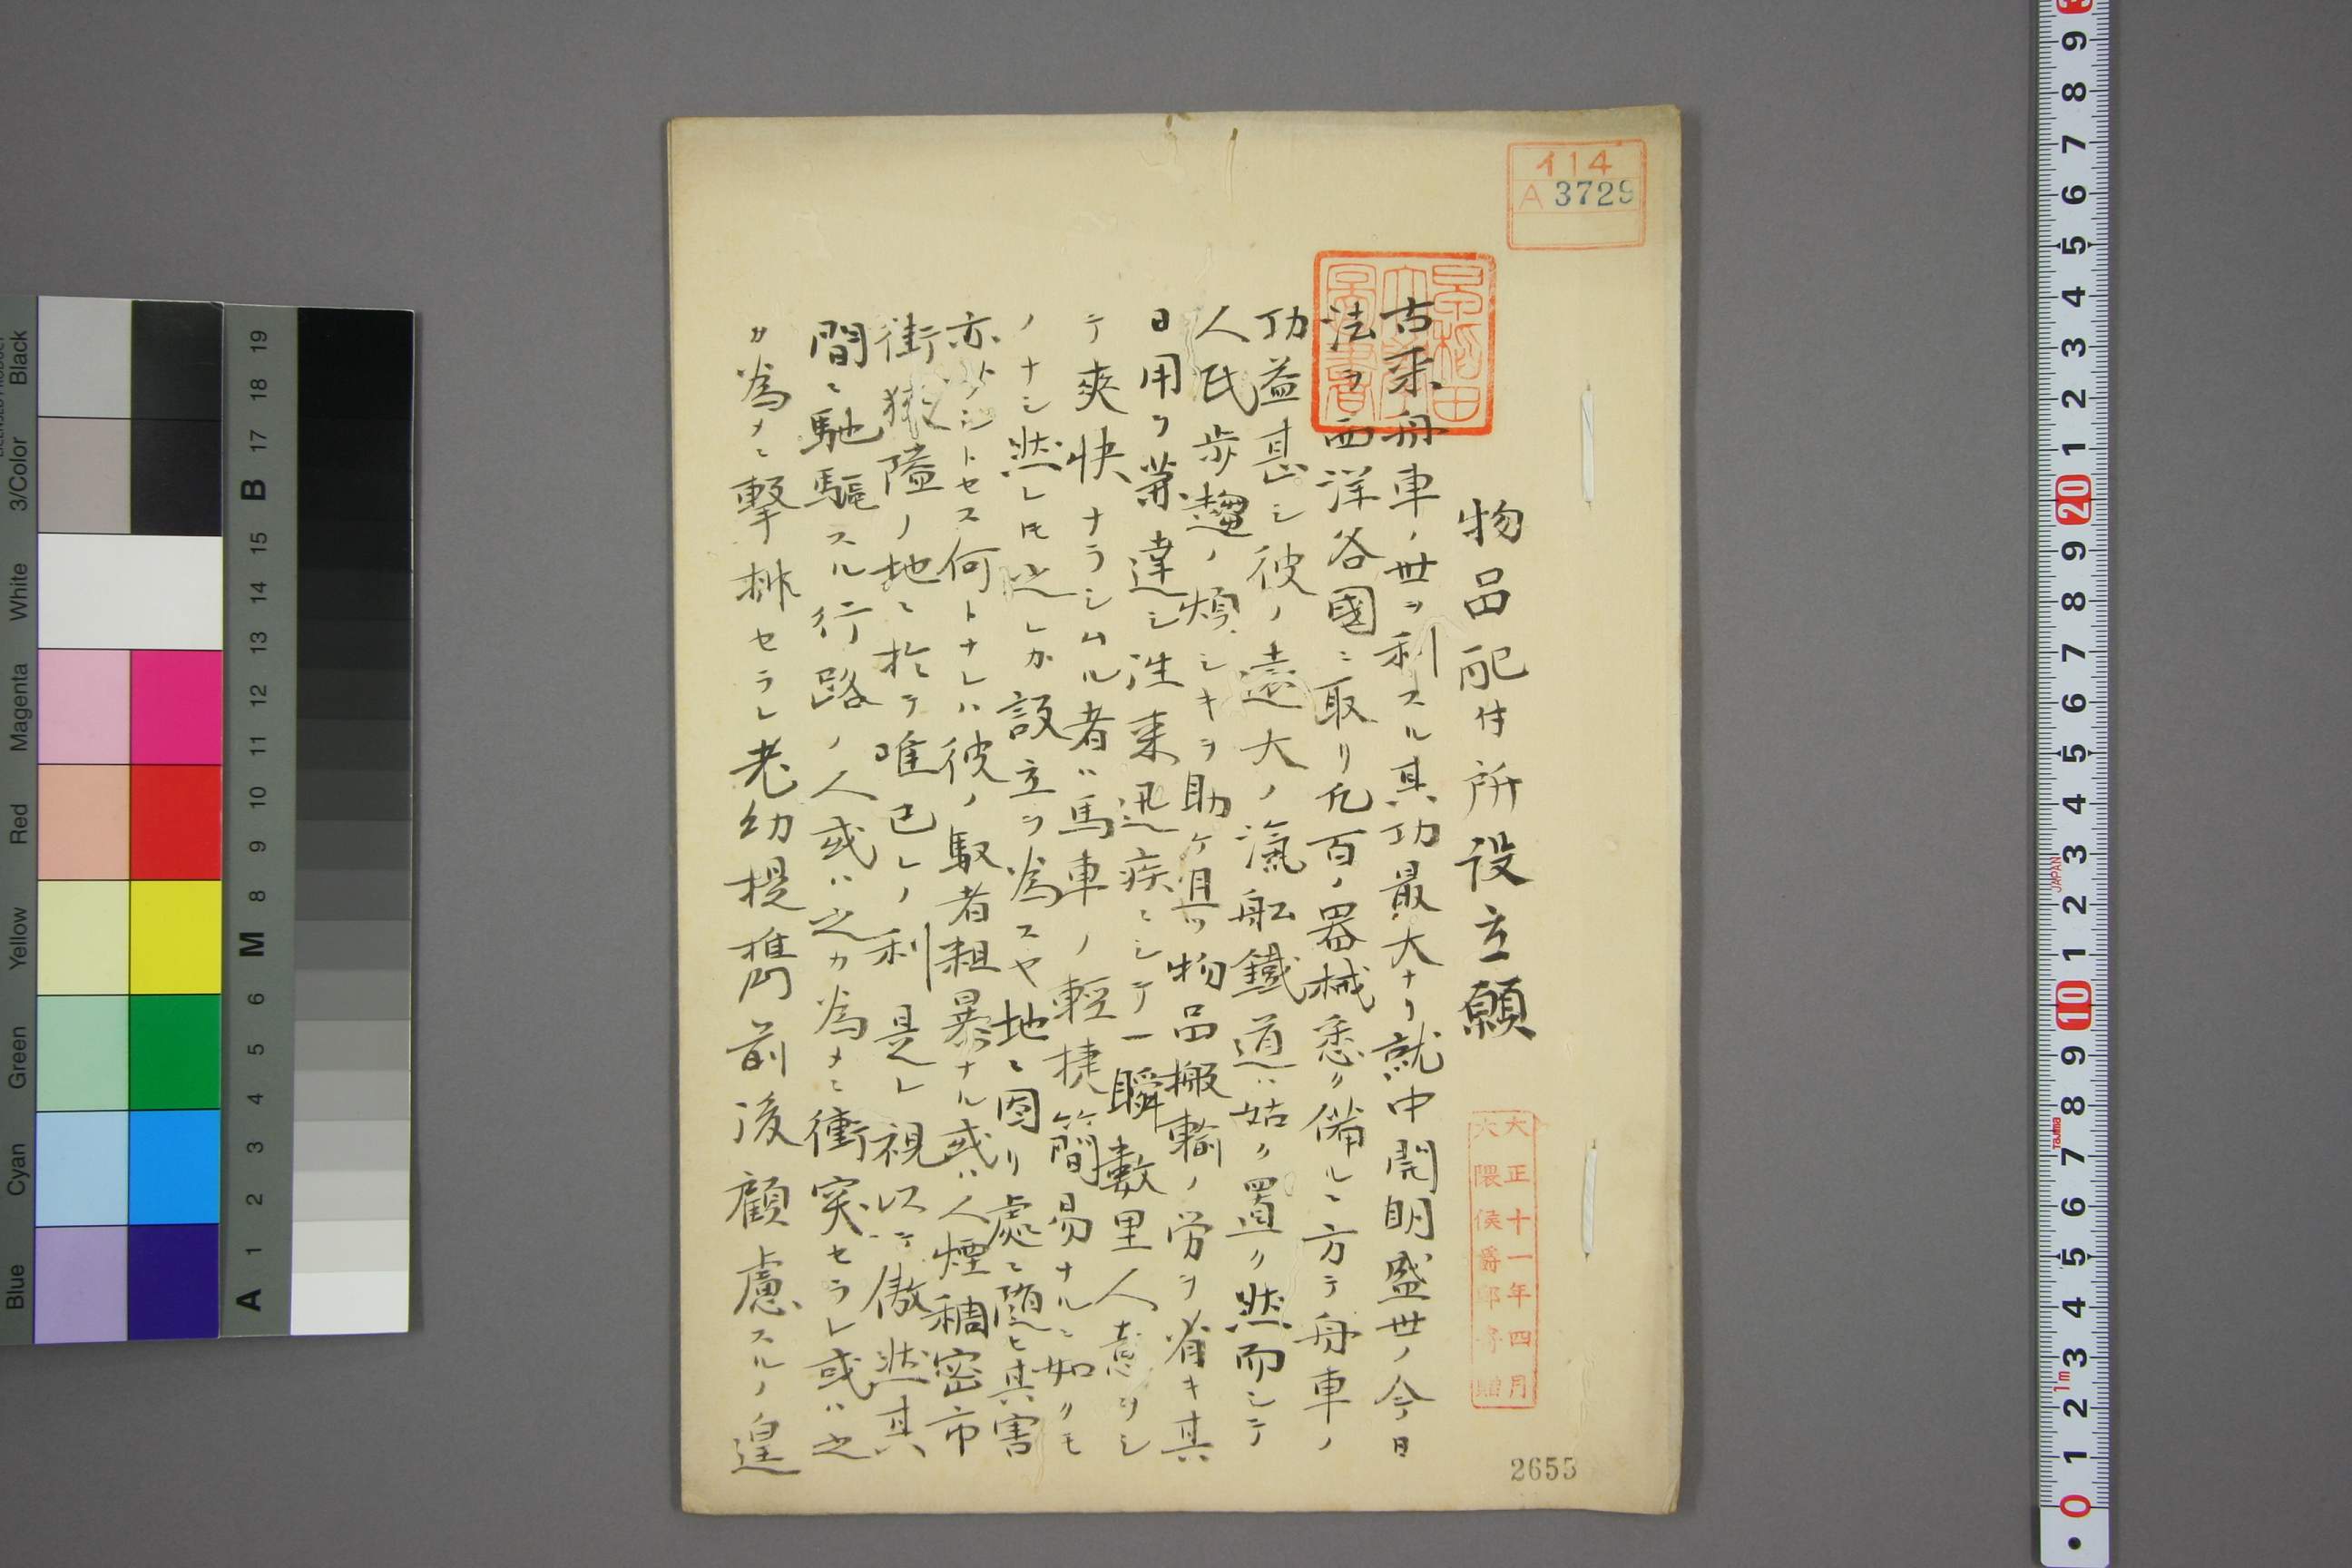 物品配付所設立願
古来舟車ノ世ヲ利スル其功最大ナリ就中開明盛世ノ今日
法ヲ西洋各國ニ取リ凡百ノ器械悉ク備ル、方テ舟車ノ
功益甚シ彼ノ遠大ノ滊舩鐵道ハ姑ク置ク然而シテ
人民歩趨ノ煩シキヲ助ケ且ツ物品搬輸ノ労ヲ省キ其
日用ヲ辨達シ往来迅疾ニシテ一瞬數里人意ヲシ
テ爽快ナラシムル者ハ馬車ノ輕捷簡易ナルニ如クモ
ノナシ然レ𪜈之レカ設立ヲ為スヤ地ニ因リ處ニ随ヒ其害
亦少シトセス何トナレハ彼ノ馭者粗暴ナル或ハ人煙稠密市
街狭隘ノ地ニ於テ唯已レノ利是レ視以テ傲然其
間ニ馳驅スル行路ノ人或ハ之カ為メニ衝突セラレ或ハ之
カ為メニ擊排セラレ老幼提携前後顧慮スルノ遑
イ14
A 3729
大正十一年四月
大隈侯爵邸寄贈
2655
Black
3/Color
White
Magenta
Red
Yellow
Green
Cyan
Blue
19
18
17
B
15
14
13
12
11
10
9
8
M
6
5
4
3
2
1
A
JAPAN
Tajima
1m